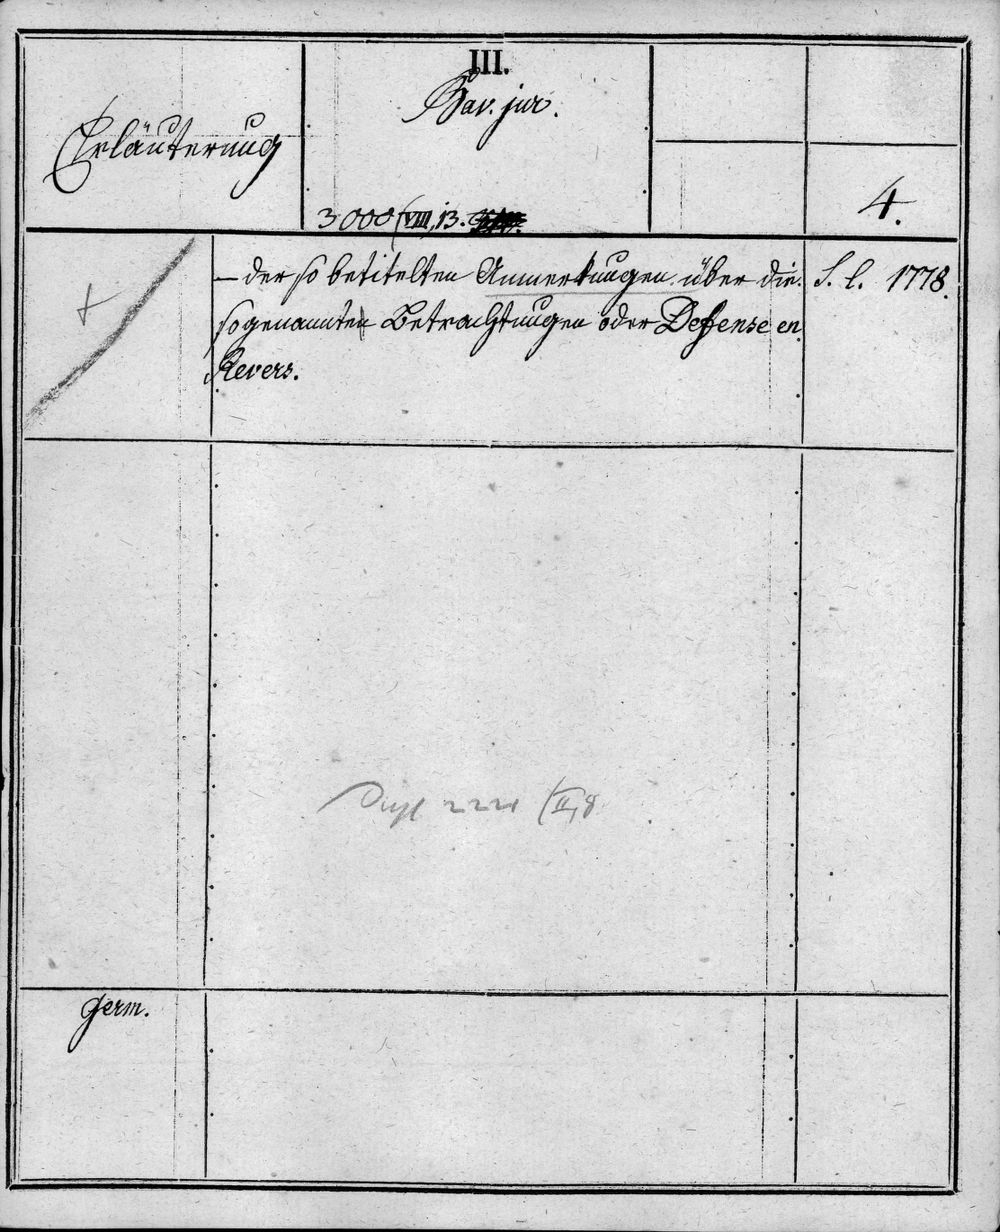 III.
Bav. jur.
Erläuterung
3000 (VIII, 13.
4.
– der so betitelten Anmerkungen über die
S. l. 1778.
sogenannten Betrachtungen oder Defense en
Revers.
222 (II, 8
germ.